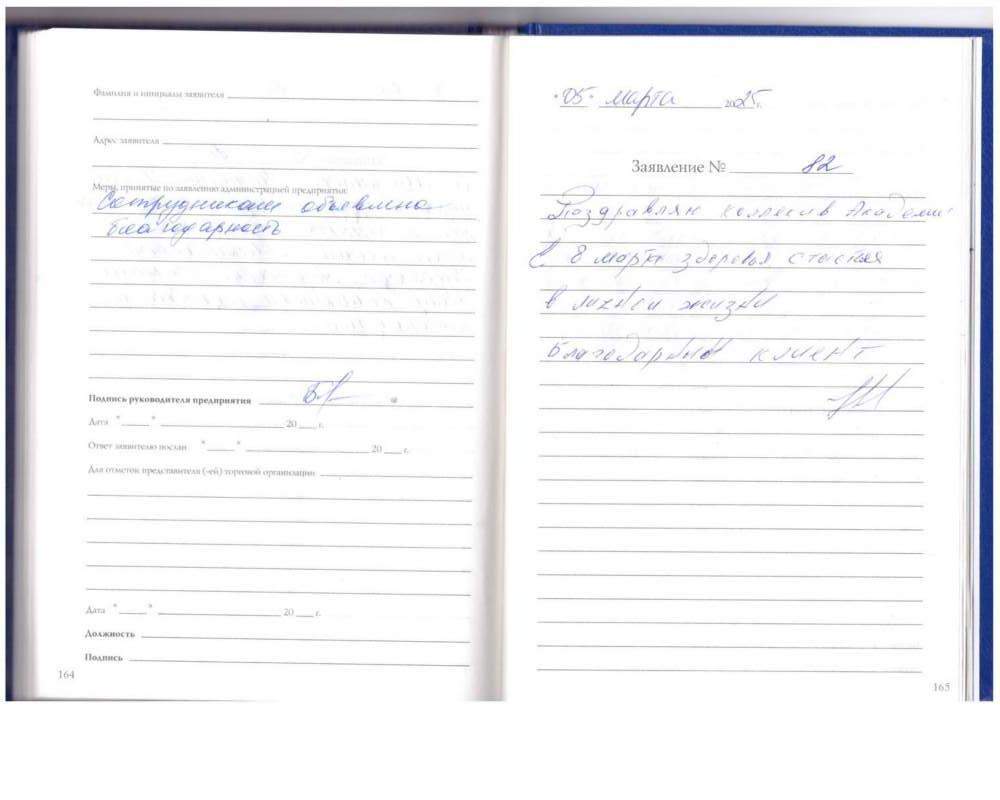 Фамилия и инициалы заявителя
Адрес заявителя
Меры, принятые по заявлению администрацией предприятия:
Сотрудникам объявлена
благодарность
Подпись руководителя предприятия
Дата " " 20 г.
Ответ заявителю послан " " 20 г.
Для отметок представителя (-ей) торговой организации
Дата " " 20 г.
Должность
Подпись
164
"05" марта 2025г.
Заявление № 82
Поздравляя коллектив Академии
С 8 марта здоровья счастья
в личной жизни
Благодарный клиент
165